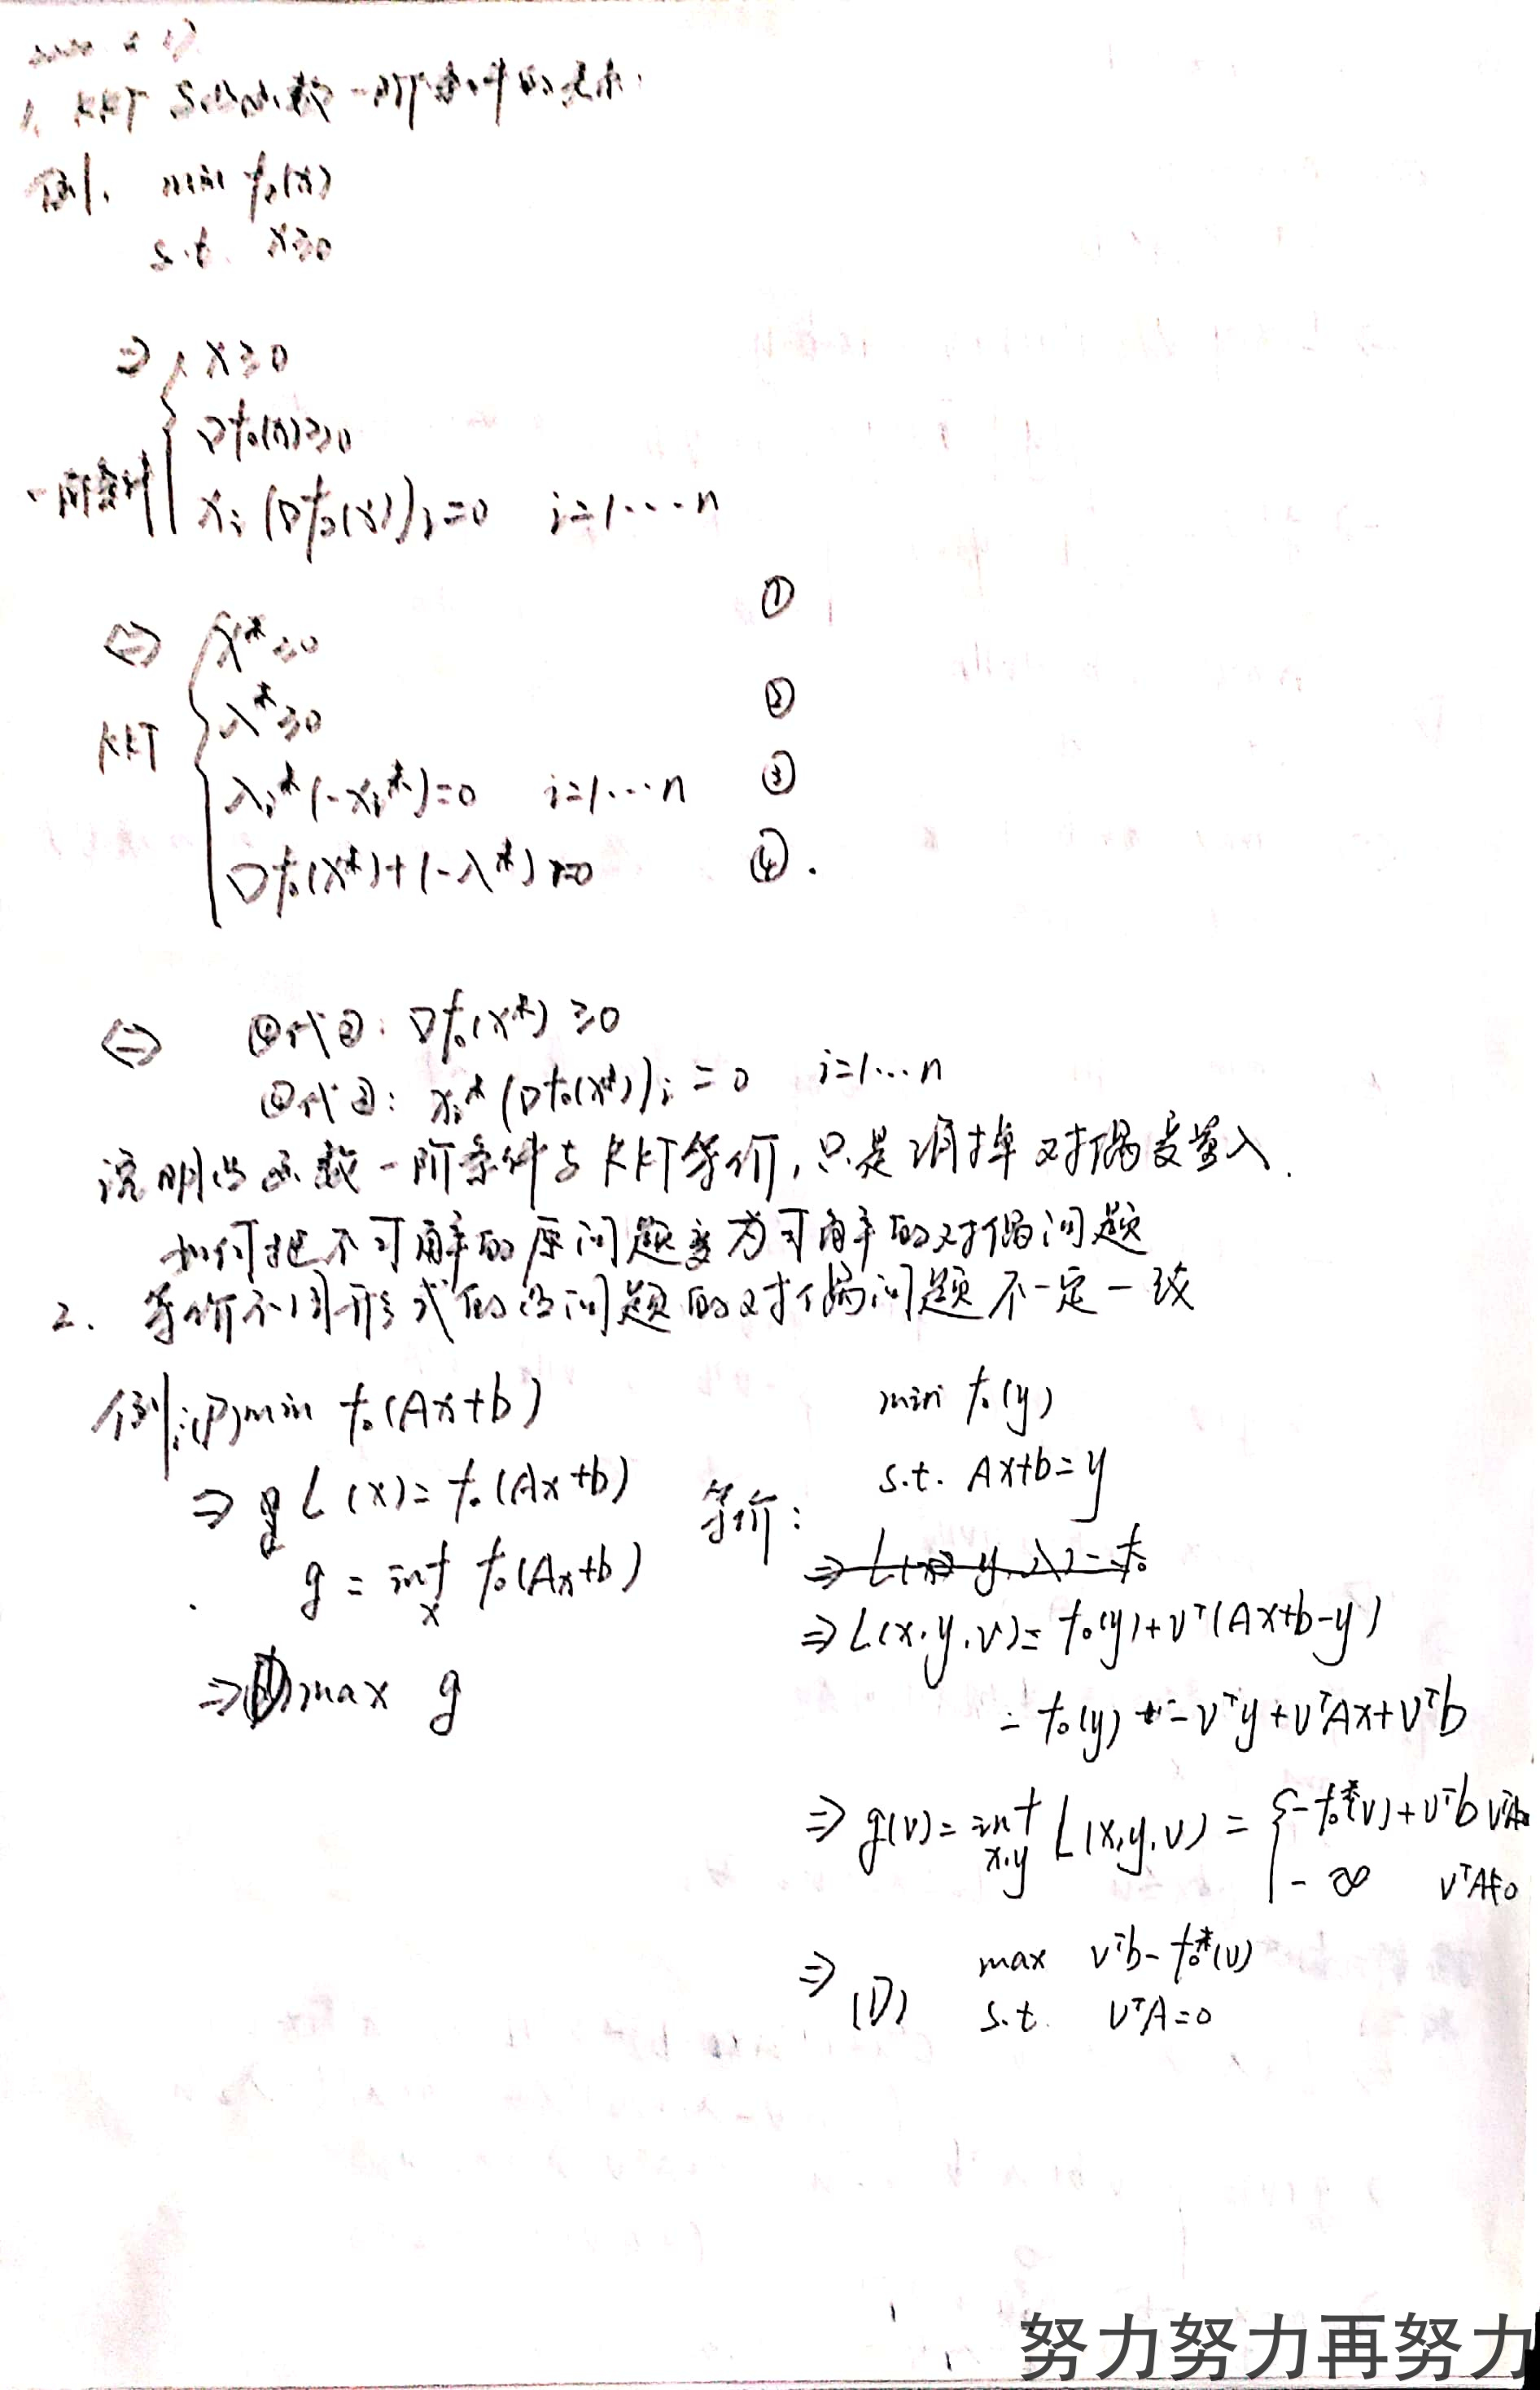 1. KKT 与凸函数一阶条件的关系:
例1. min f₀(x)
s.t. x≥0
⇒ { x≥0
∇f₀(x)≥0
一阶条件 xᵢ(∇f₀(x))ᵢ=0 i=1…n
①
⇔ { x*≥0
λ*≥0 ②
KKT
λᵢ*(-xᵢ*)=0 i=1…n ③
∇f₀(x*)+(-λ*)=0 ④.
⇔ ④代②: ∇f₀(x*)≥0
④代③: xᵢ*(∇f₀(x*))ᵢ=0 i=1…n
说明凸函数一阶条件与KKT等价,只是消掉对偶变量λ.
如何把不可解的原问题变为可解的对偶问题
2. 等价不同形式的凸问题的对偶问题不一定一致
例:(P)min f₀(Ax+b)
⇒ L(x)=f₀(Ax+b)
g=inf f₀(Ax+b)
x
⇒(D)max g
min f₀(y)
s.t. Ax+b=y
等价:
⇒L(x,y,ν)=f₀(y)+νᵀ(Ax+b-y)
=f₀(y)-νᵀy+νᵀAx+νᵀb
⇒g(ν)=inf L(x,y,ν)={-f₀*(ν)+νᵀb νᵀA=0
x,y -∞ νᵀA≠0
⇒ max νᵀb-f₀*(ν)
(D) s.t. νᵀA=0
努力努力再努力